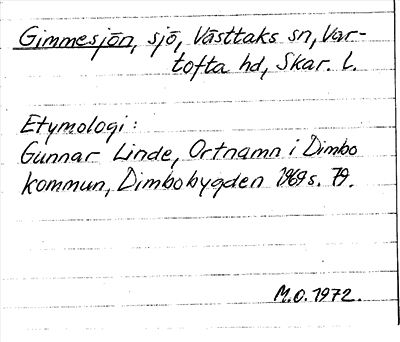 Gimmesjön, sjö, Västtaks sn, Var-
tofta hd, Skar. l.
Etymologi:
Gunnar Linde, Ortnamn i Dimbo
kommun, Dimbobygden 1969 s. 79.
M.O. 1972.